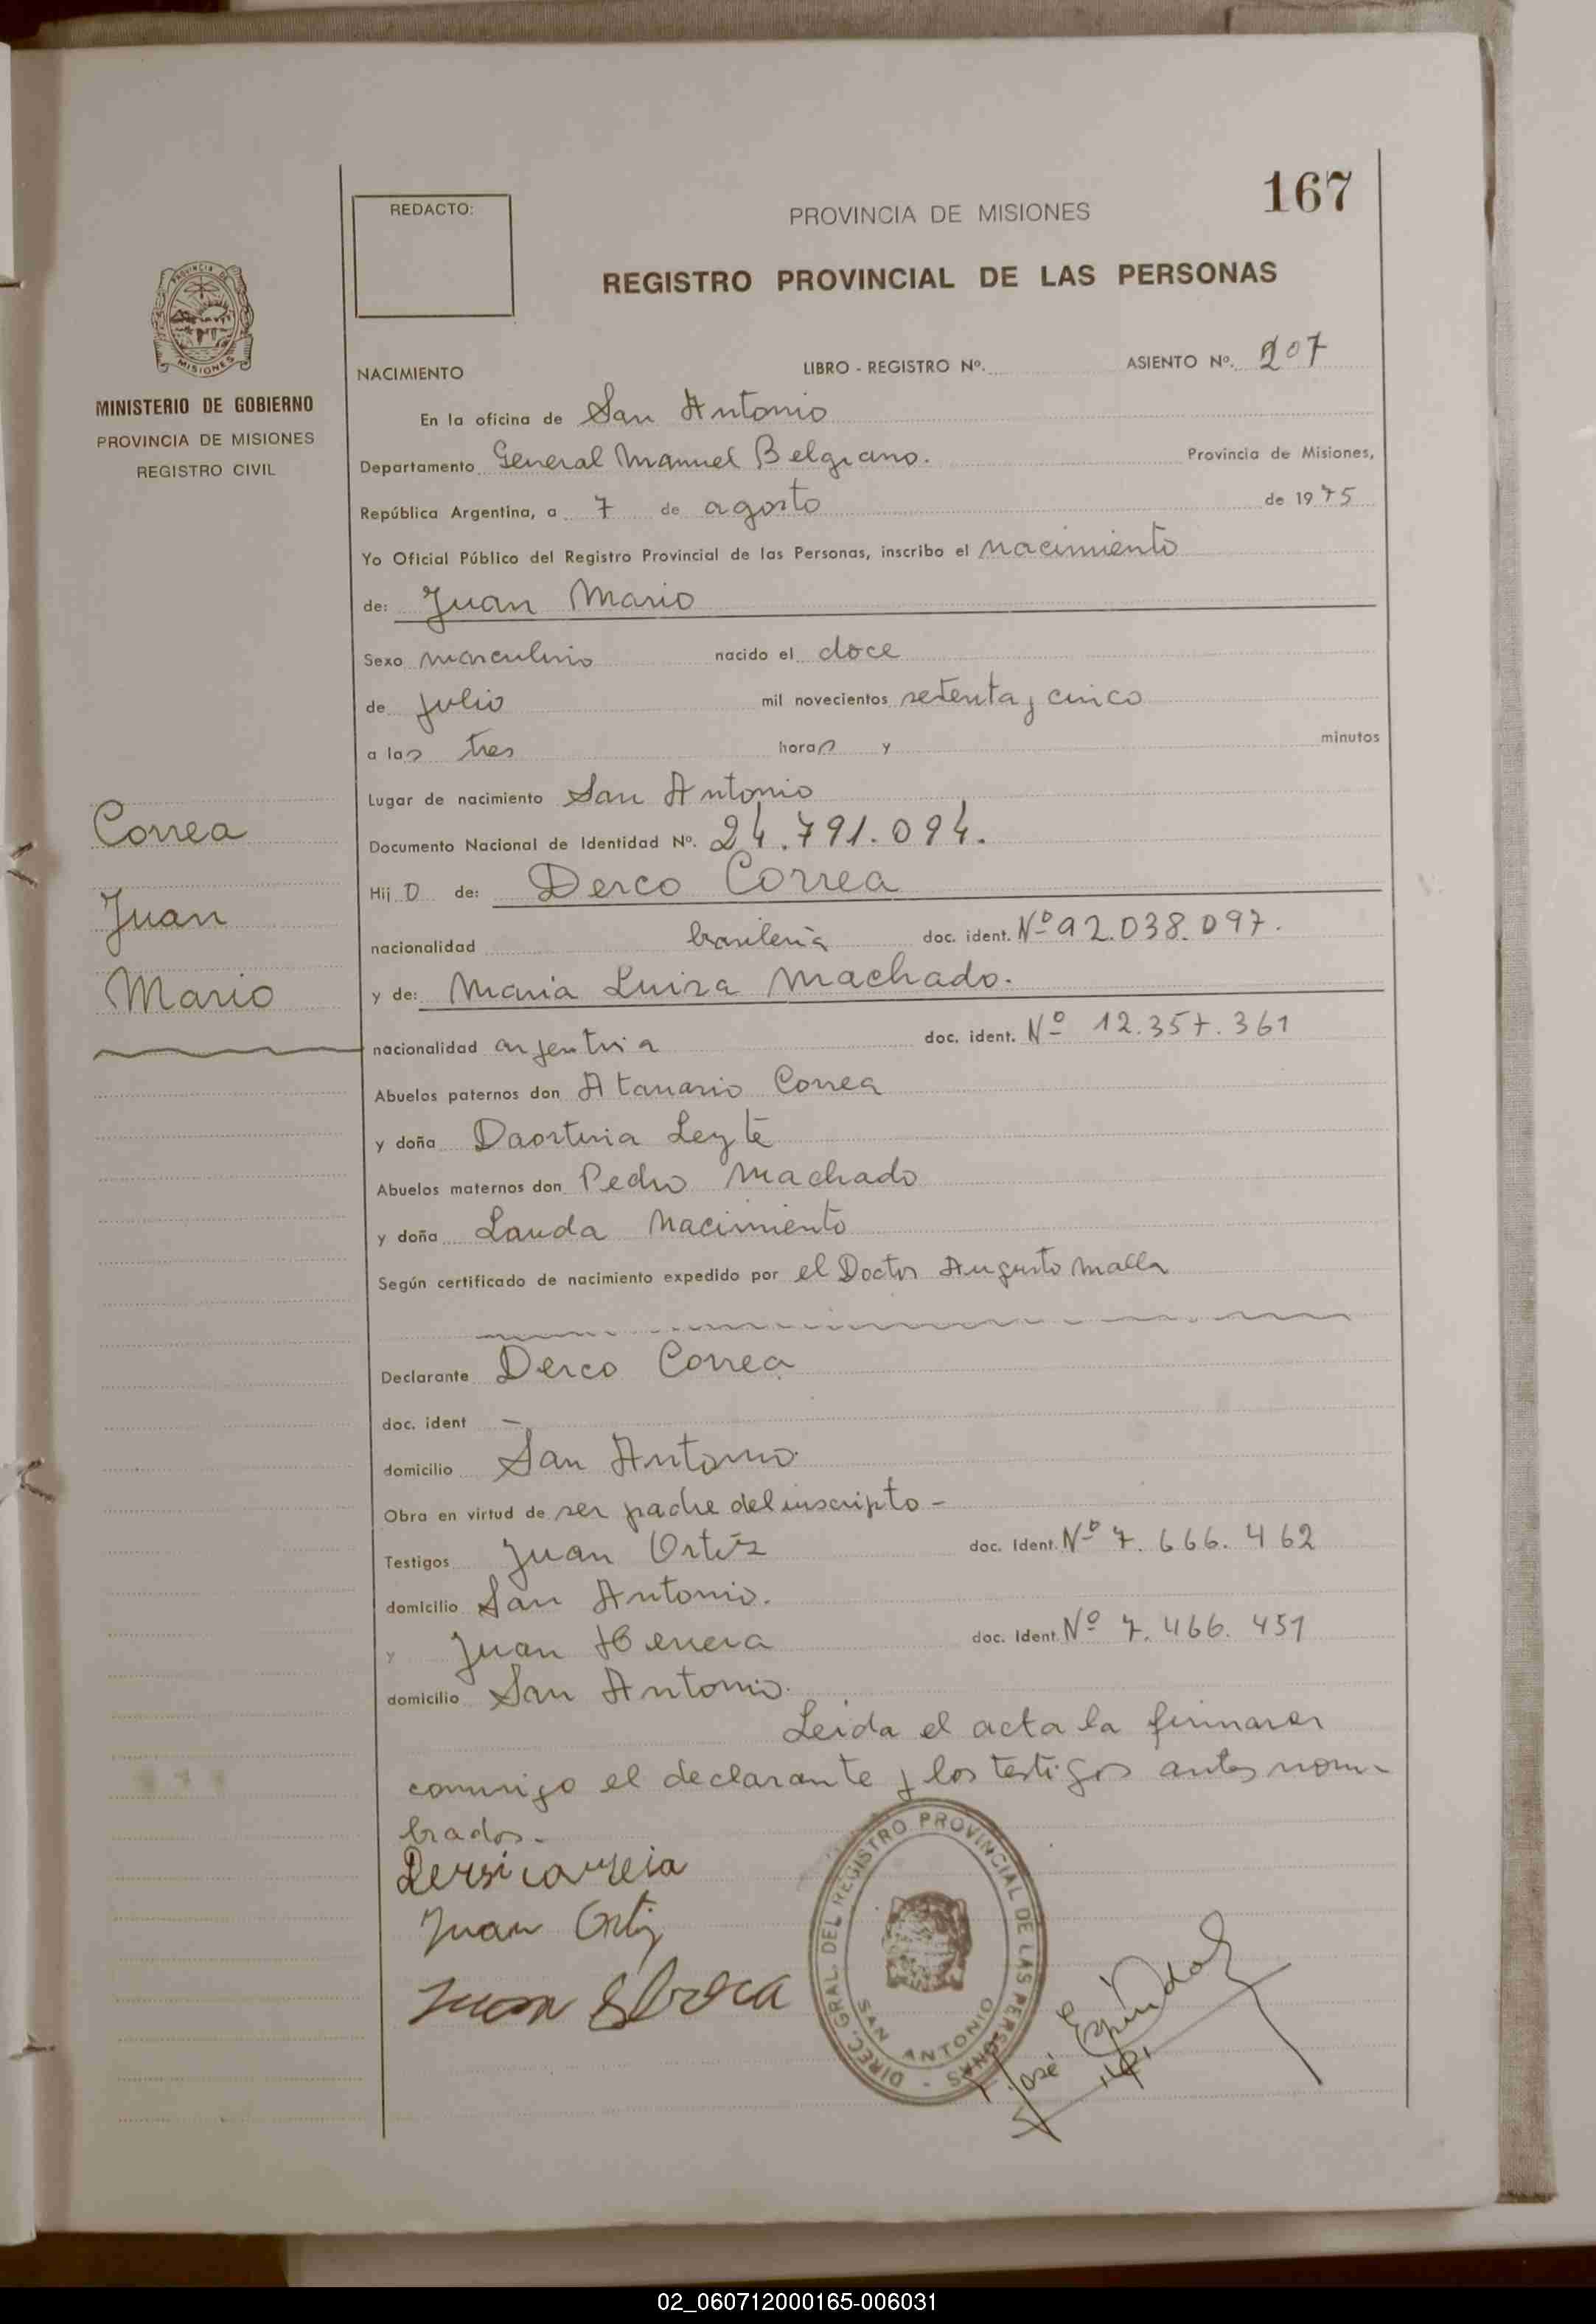 167
REDACTO:
PROVINCIA DE MISIONES
REGISTRO PROVINCIAL DE LAS PERSONAS
PROVINCIA DE MISIONES
MINISTERIO DE GOBIERNO
PROVINCIA DE MISIONES
REGISTRO CIVIL
NACIMIENTO LIBRO - REGISTRO Nº. ASIENTO Nº. 207
En la oficina de San Antonio
Departamento General Manuel Belgrano. Provincia de Misiones,
República Argentina, a 7 de agosto de 1975
Yo Oficial Público del Registro Provincial de las Personas, inscribo el nacimiento
de: Juan Mario
Sexo masculino nacido el doce
de julio mil novecientos setenta y cinco
a las tres horas y minutos
Lugar de nacimiento San Antonio
Correa
Juan
Mario
Documento Nacional de Identidad Nº. 24.791.094.
Hij o de: Derco Correa
nacionalidad brasileña doc. ident. Nº 92.038.097.
y de: Maria Luiza Machado.
nacionalidad argentina doc. ident. Nº 12.357.361
Abuelos paternos don Atanario Correa
y doña Leyte
Abuelos maternos don Pedro Machado
y doña Lauda Nacimiento
Según certificado de nacimiento expedido por el Doctor Augusto Malla
Declarante Derco Correa
doc. ident -
domicilio San Antonio.
Obra en virtud de ser padre del inscripto -
Testigos Juan Ortíz doc. Ident. Nº 7.666.462
domicilio San Antonio.
y Juan Herrera doc. Ident. Nº 7.466.451
domicilio San Antonio.
Leida el acta la firmaron
conmigo el declarante y los testigos antes nom-
brados.-
Juan Ortiz
Juan
DIREC. GRAL. DEL REGISTRO PROVINCIAL DE LAS PERSONAS -
SAN ANTONIO
José Espíndola